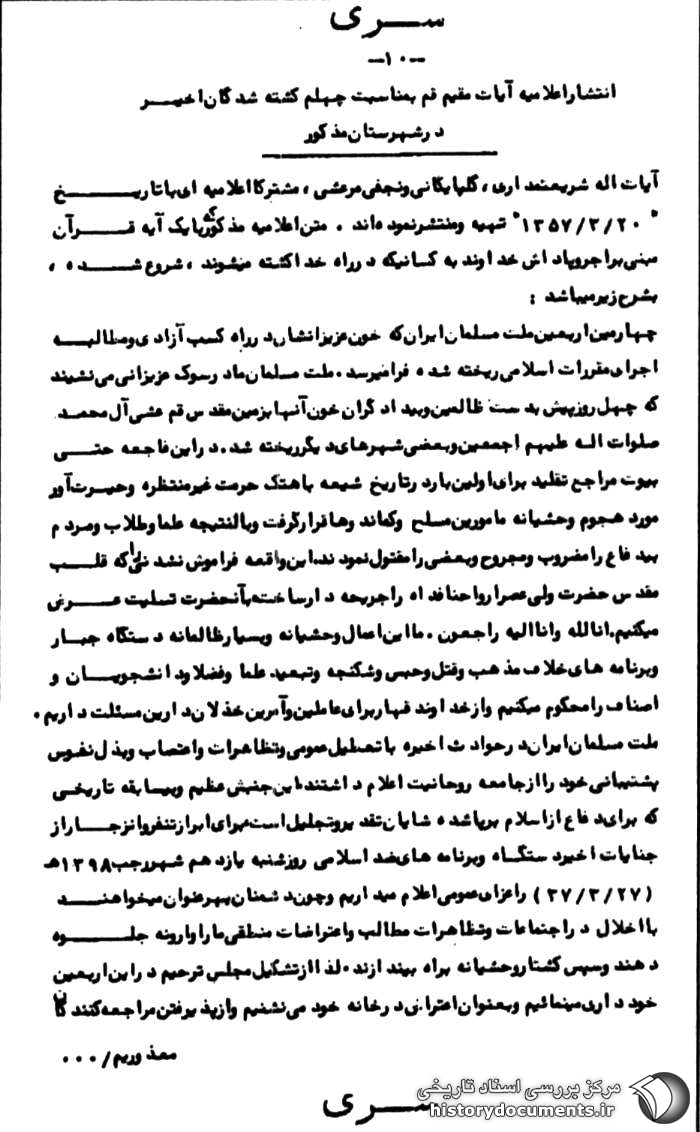 سری
-۱۰-
انتشار اعلامیه آیات مقیم قم بمناسبت چهلم کشته شدگان اخیر
در شهرستان مذکور
آیات اله شریعتمداری، گلپایگانی و نجفی مرعشی، مشترکا اعلامیه ای با تاریخ
"۱۳۵۷/۲/۲۰" تهیه و منتشر نموده اند. متن اعلامیه مذکور که با یک آیه قرآن
مبنی بر اجر و پاداش خداوند به کسانیکه در راه خدا کشته میشوند، شروع شده،
بشرح زیر میباشد:
چهارمین اربعین ملت مسلمان ایران که خون عزیزانشان در راه کسب آزادی و مطالبه
اجرای مقررات اسلامی ریخته شده فرا میرسد. ملت مسلمان ما در سوک عزیزانی می نشیند
که چهل روز پیش بدست ظالمین و بیدادگران خون آنها بزمین مقدس قم عش آل محمد
صلوات اله علیهم اجمعین و بعضی شهرهای دیگر ریخته شد. در این فاجعه حتی
بیوت مراجع تقلید برای اولین بار در تاریخ شیعه با هتک حرمت غیر منتظره و حیرت آور
مورد هجوم وحشیانه مامورین مسلح و کماندوها قرار گرفت و بالنتیجه علما و طلاب و مردم
بیدفاع را مضروب و مجروح و بعضی را مقتول نمودند. این واقعه فراموش نشدنی را که قلب
مقدس حضرت ولی عصر ارواحنا فداه را جریحه دار ساخته بآنحضرت تسلیت عرض
میکنیم. انا لله و انا الیه راجعون. ما این اعمال وحشیانه و بسیار ظالمانه دستگاه جبار
و برنامه های خلاف مذهب و قتل و حبس و شکنجه و تبعید علما و فضلا و دانشجویان و
اصناف را محکوم میکنیم و از خداوند قهار برای عاملین و آمرین خذلان دارین مسئلت داریم.
ملت مسلمان ایران در حوادث اخیره با تعطیل عمومی و تظاهرات و اعتصاب و بذل نفوس
پشتیبانی خود را از جامعه روحانیت اعلام داشتند. این جنبش عظیم و بیسابقه تاریخی
که برای دفاع از اسلام برپا شده شایان تقدیر و تجلیل است. برای ابراز تنفر و انزجار از
جنایات اخیر دستگاه و برنامه های ضد اسلامی روز شنبه یازدهم شهر رجب ۱۳۹۸هـ
(۳۷/۳/۲۷) را عزای عمومی اعلام میداریم و چون دشمنان بهر عنوان میخواهند
با اخلال در اجتماعات و تظاهرات مطالب و اعتراضات منطقی ما را وارونه جلوه
دهند و سپس کشتار وحشیانه براه بیندازند. لذا از تشکیل مجلس ترحیم در این اربعین
خودداری مینمائیم و بعنوان اعتراض در خانه خود می نشینیم و از پذیرفتن مراجعه کنندگان
معذوریم/۰۰۰
مرکز بررسی اسناد تاریخی
historydocuments.ir
سری